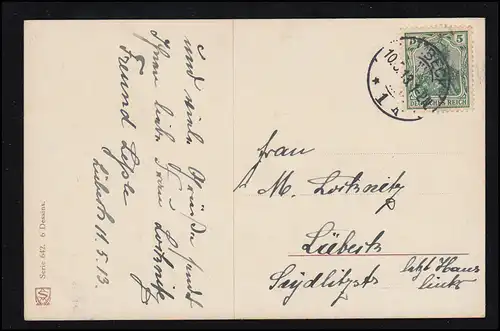 und viele Grüße sendet
Ihnen liebe Frau Lorknitz
Freund
Lübeck 11.5.13.
Serie 642. 6 Dessins.
5
DEUTSCHES REICH
* 1
Frau
M. Lorknitz
Lübeck
Seydlitzstr.
letzt Haus
links